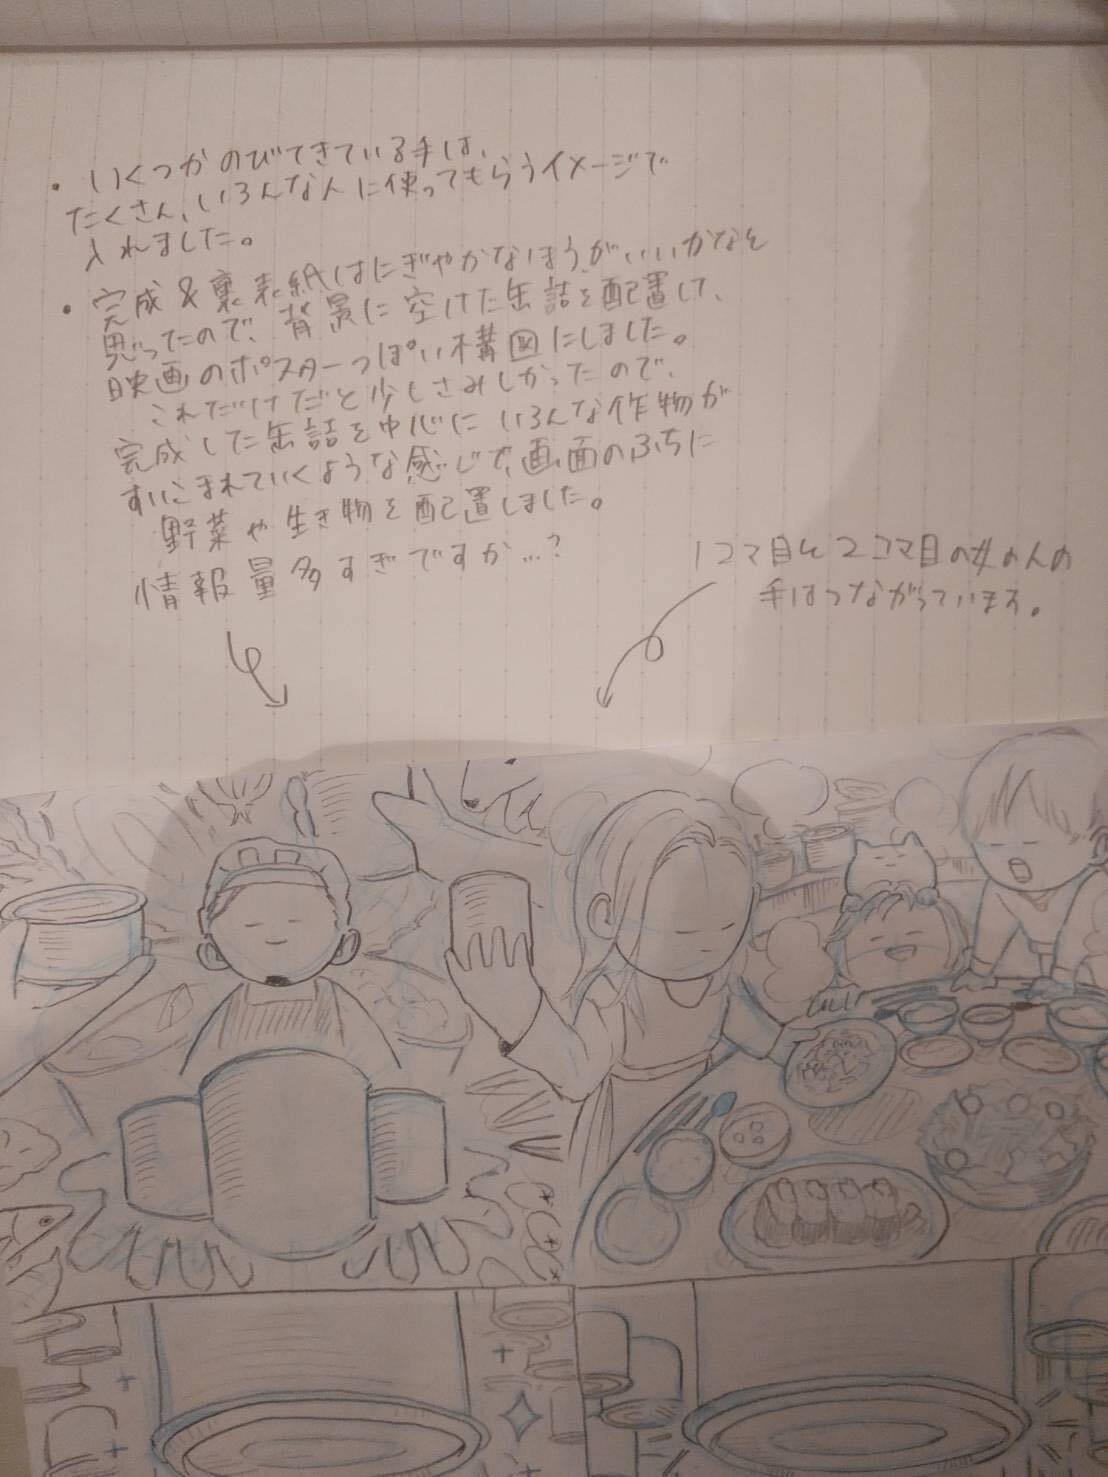 ・いくつかのびてきている手は、
たくさん、いろんな人に使ってもらうイメージで
入れました。
・完成&裏表紙はにぎやかなほうがいいかなと
思ったので、背景に空けた缶詰を配置して、
映画のポスターっぽい構図にしました。
これだけだと少しさみしかったので、
完成した缶詰を中心にいろんな作物が
すいこまれていくような感じで、画面のふちに
野菜や生き物を配置しました。
情報量多すぎですか…?
1コマ目と2コマ目の女の人の
手はつながっています。